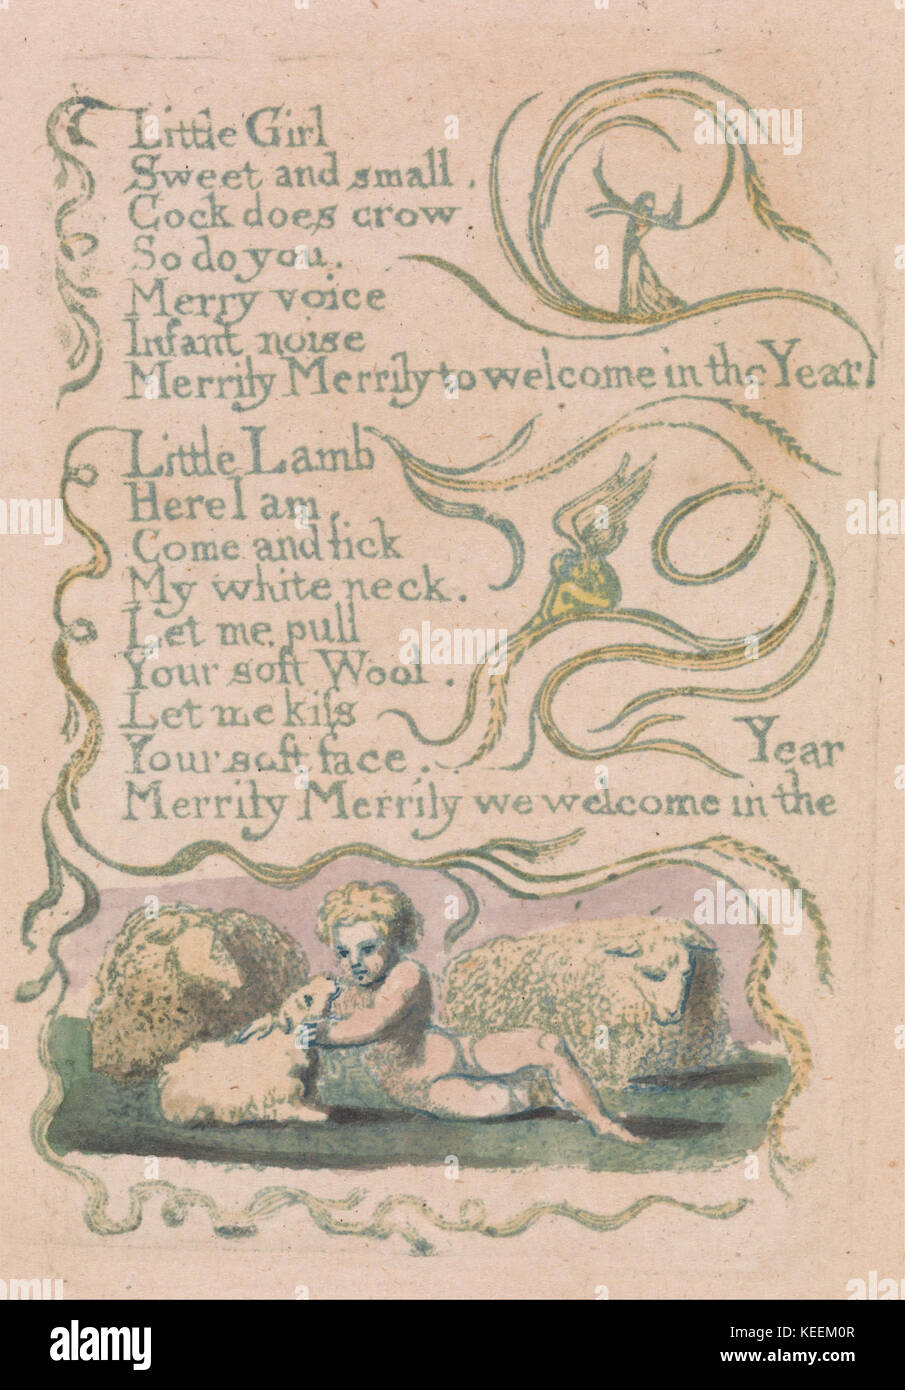 Little Girl
Sweet and small.
Cock does crow
So do you.
Merry voice
Infant noise
Merrily Merrily to welcome in the Year
Little Lamb
Here I am.
Come and lick
My white neck.
Let me pull
Your soft Wool.
Let me kiſs
Your soft face.
Merrily Merrily we welcome in the
Year
alamy
Image ID: KEEM0R
www.alamy.com